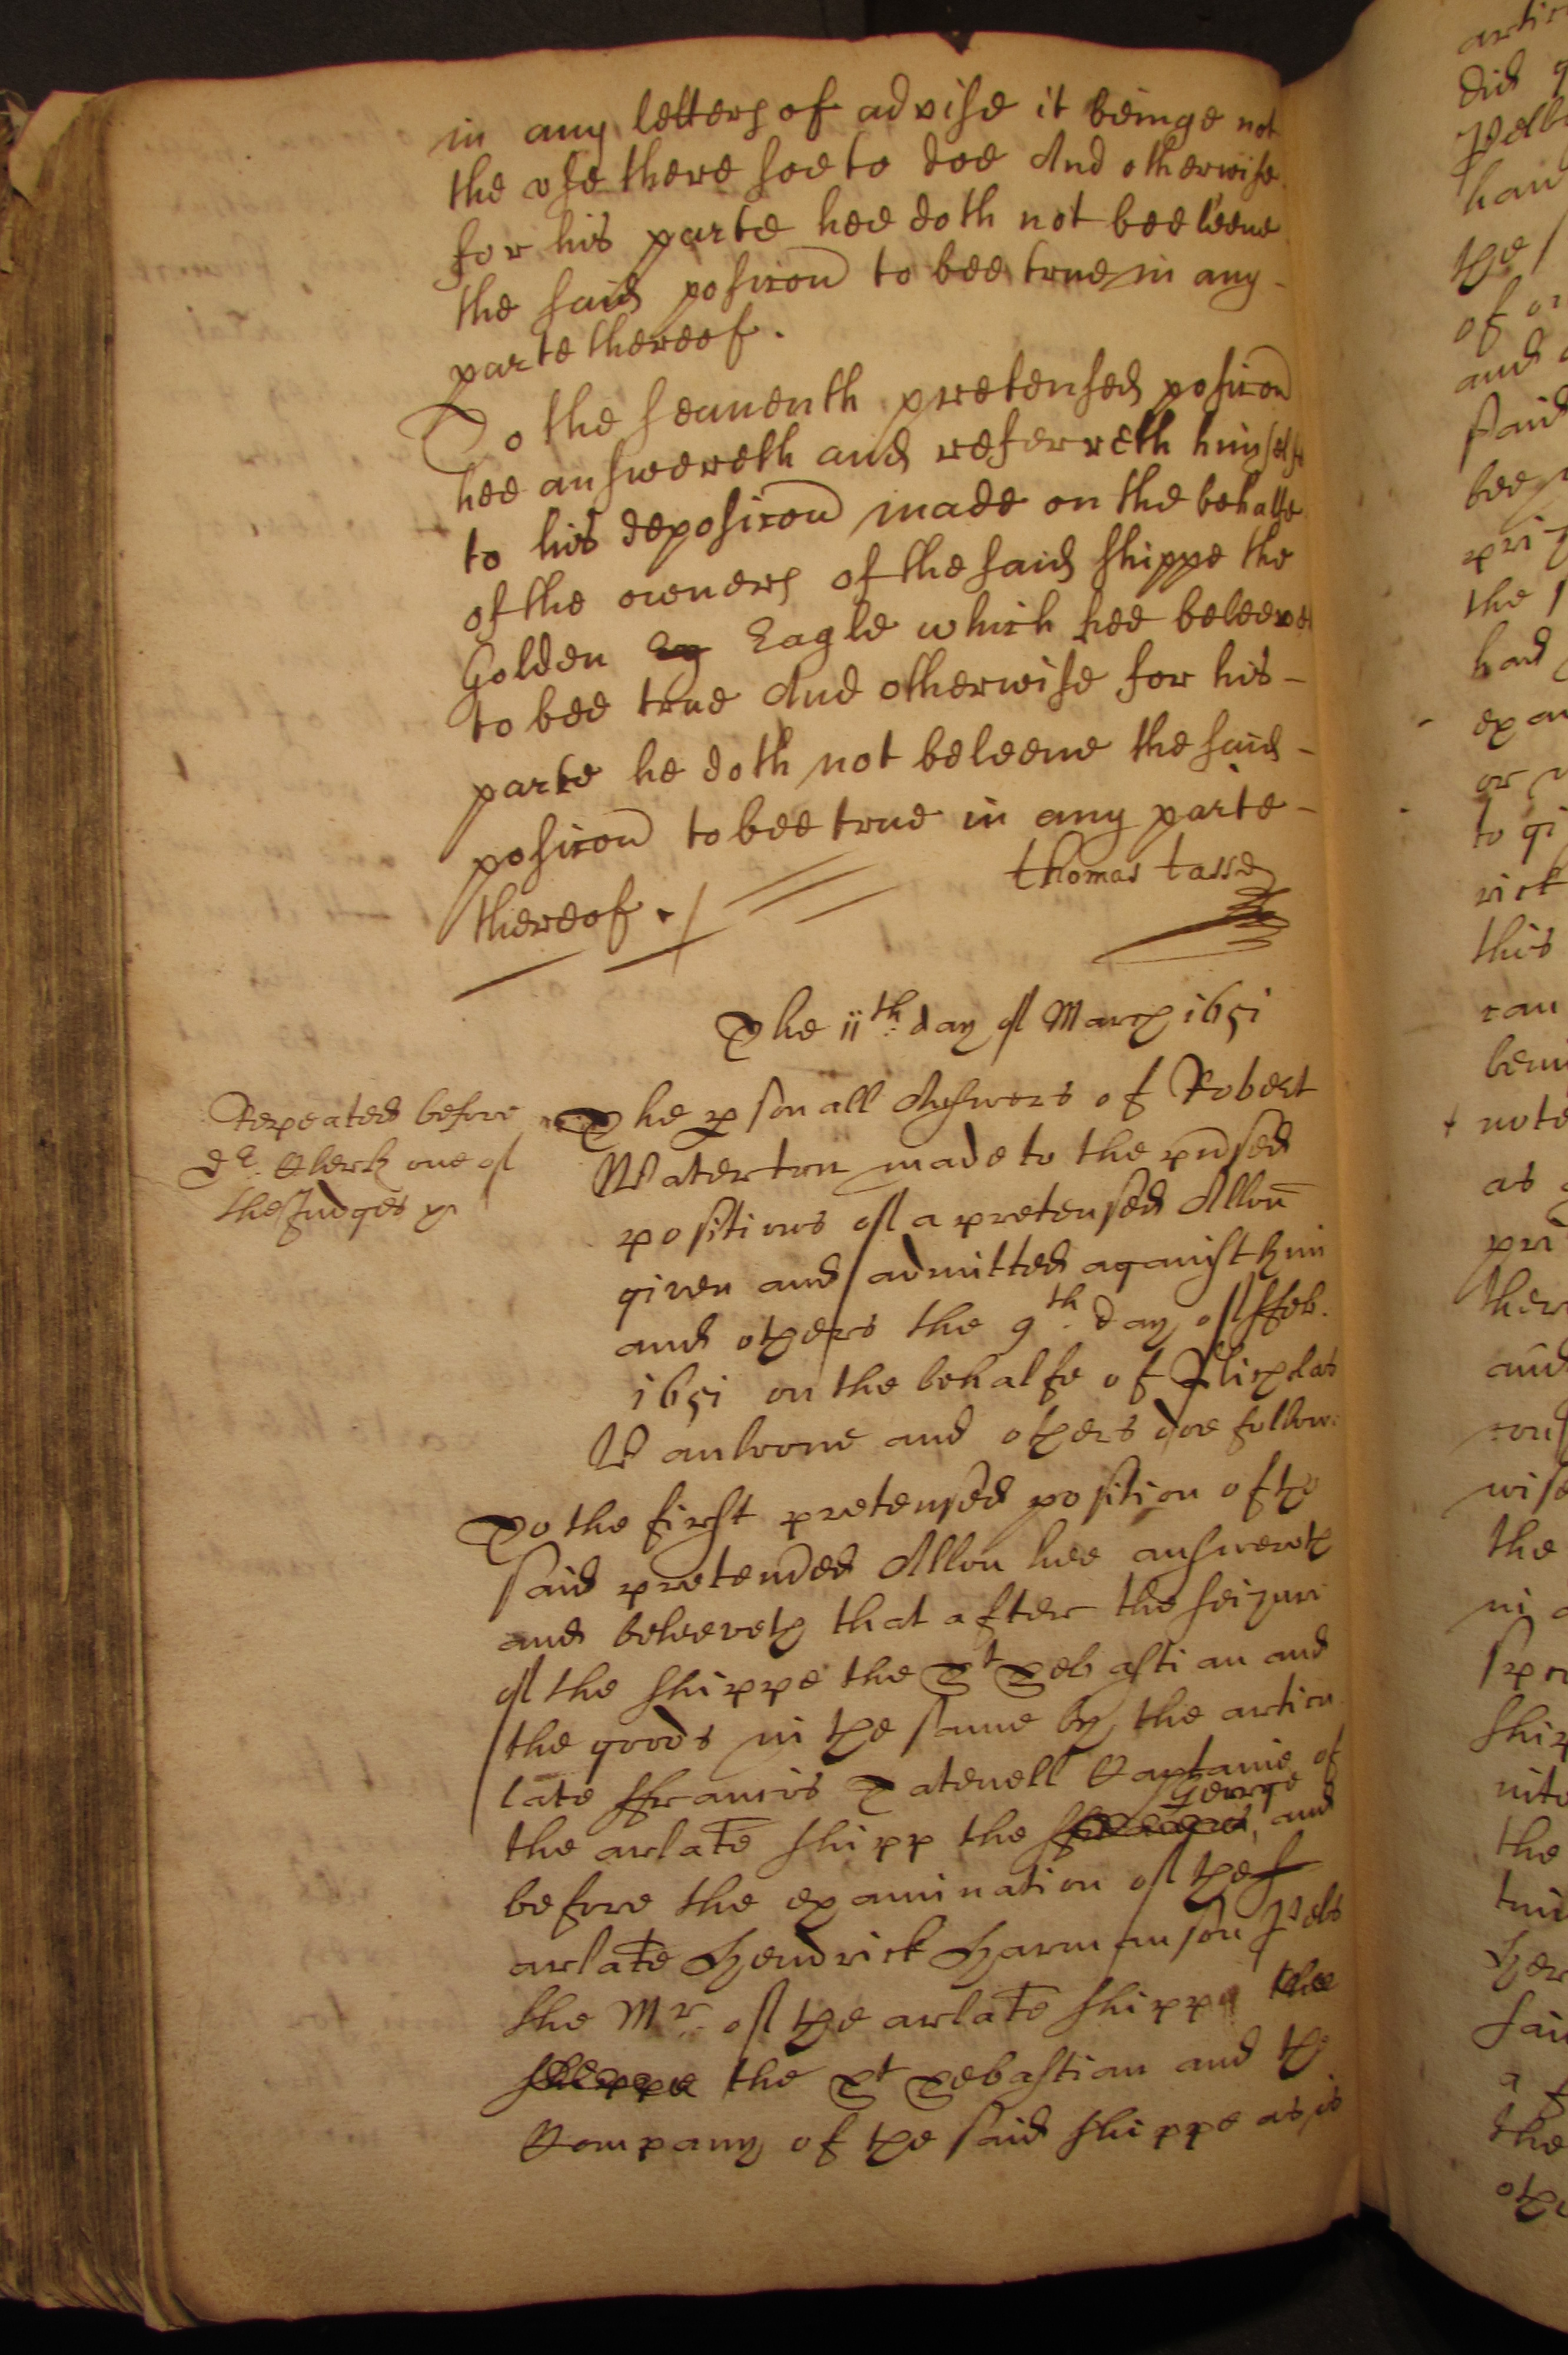 in any letters of advise it beinge not
the use there soe to doe And otherwise
for his parte hee doth not beeleeue
the said posicon to bee true in any -
parte thereof.
To the seauenth pretensed posicon
hee answereth and referreth himselfe
to his deposicon made on the behalfe
of the owners of the said shippe the
Golden Eag Eagle which hee beleeves
to bee true And otherwise for his -
parte he doth not beleeue the said -
posicon to bee true in any parte -
thereof.
thomas tasse
The 11th day of March 1651
Repeated before
Dr. Clerk one of
the Judges
The psonall Answers of Robert
Waterton made to the
positions of a pretensed Allon
given and admitted against him
and others the 9th day of ffeb.
1651 on the behalfe of
and others doe follow:
To the first pretensed position of the
said pretended Allon hee answereth
and beleeveth that after the seizure
of the shippe the St Sebastian and
the goods in the same by the articu
late ffrancis Captaine of
the arlate shipp the George and
before the examination of the
arlate Hendrick Harmanson Pels
the Mr. of the arlate shippe the
shippe the St Sebastian and the
Company of the said shippe as is
artic
did
hau
the
of
and
said
bee
pri
the
had
exa
or
to gi
rick
this
can
note
as
pri
ther
and
cons
wise
the
in
ship
the
sai
a
the